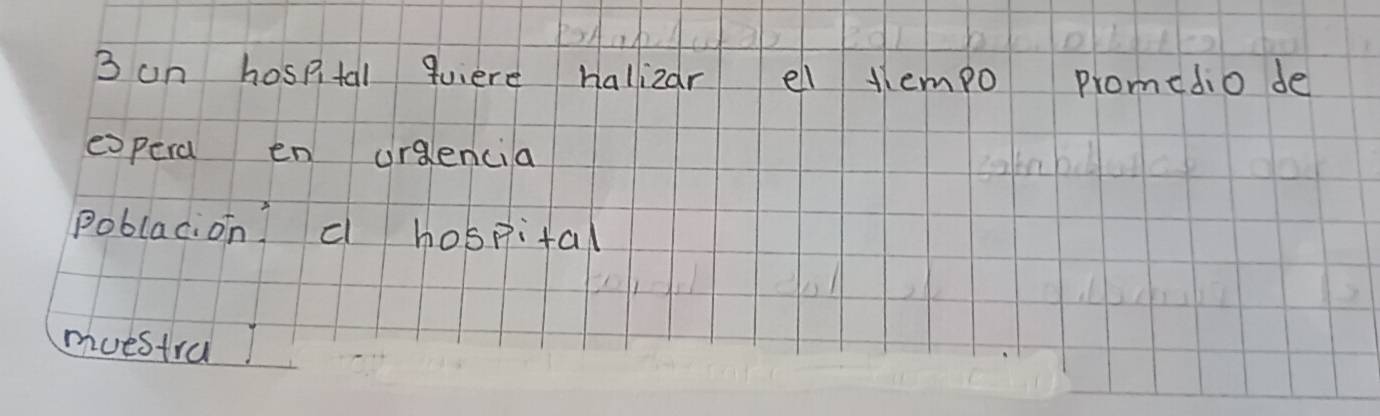 3 un hospital quiere halizar el tiempo promedio de
espera en urgencia
población: el hospital
muestra: